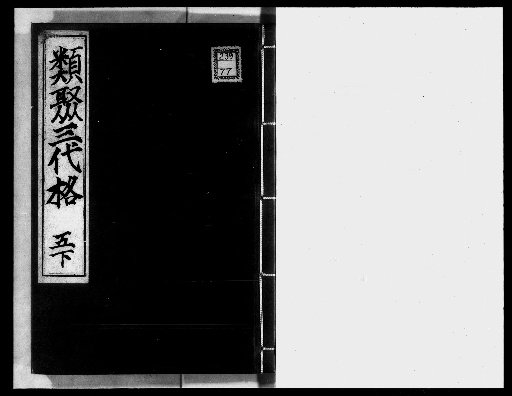 類聚三代格 五下
77